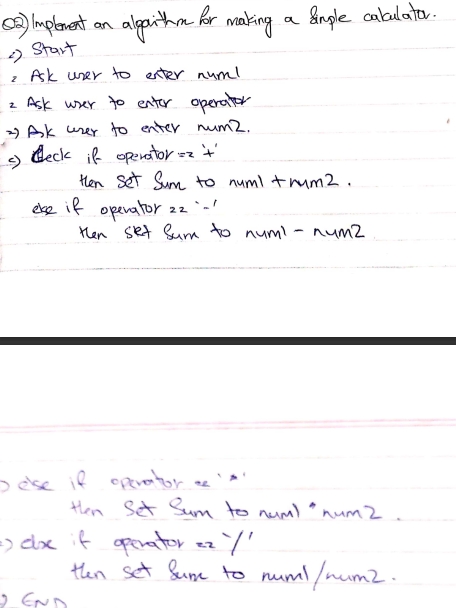 Q2) Implement an algorithm for making a simple calculator.
1) Start
2 Ask user to enter num1
2 Ask user to enter operator
3) Ask user to enter num2.
5) Check if operator == '+'
then set Sum to num1 + num2.
else if operator == '-'
then set Sum to num1 - num2
) else if operator == '*'
then set Sum to num1 * num2.
) else if operator == '/'
then set Sum to num1/num2.
) END